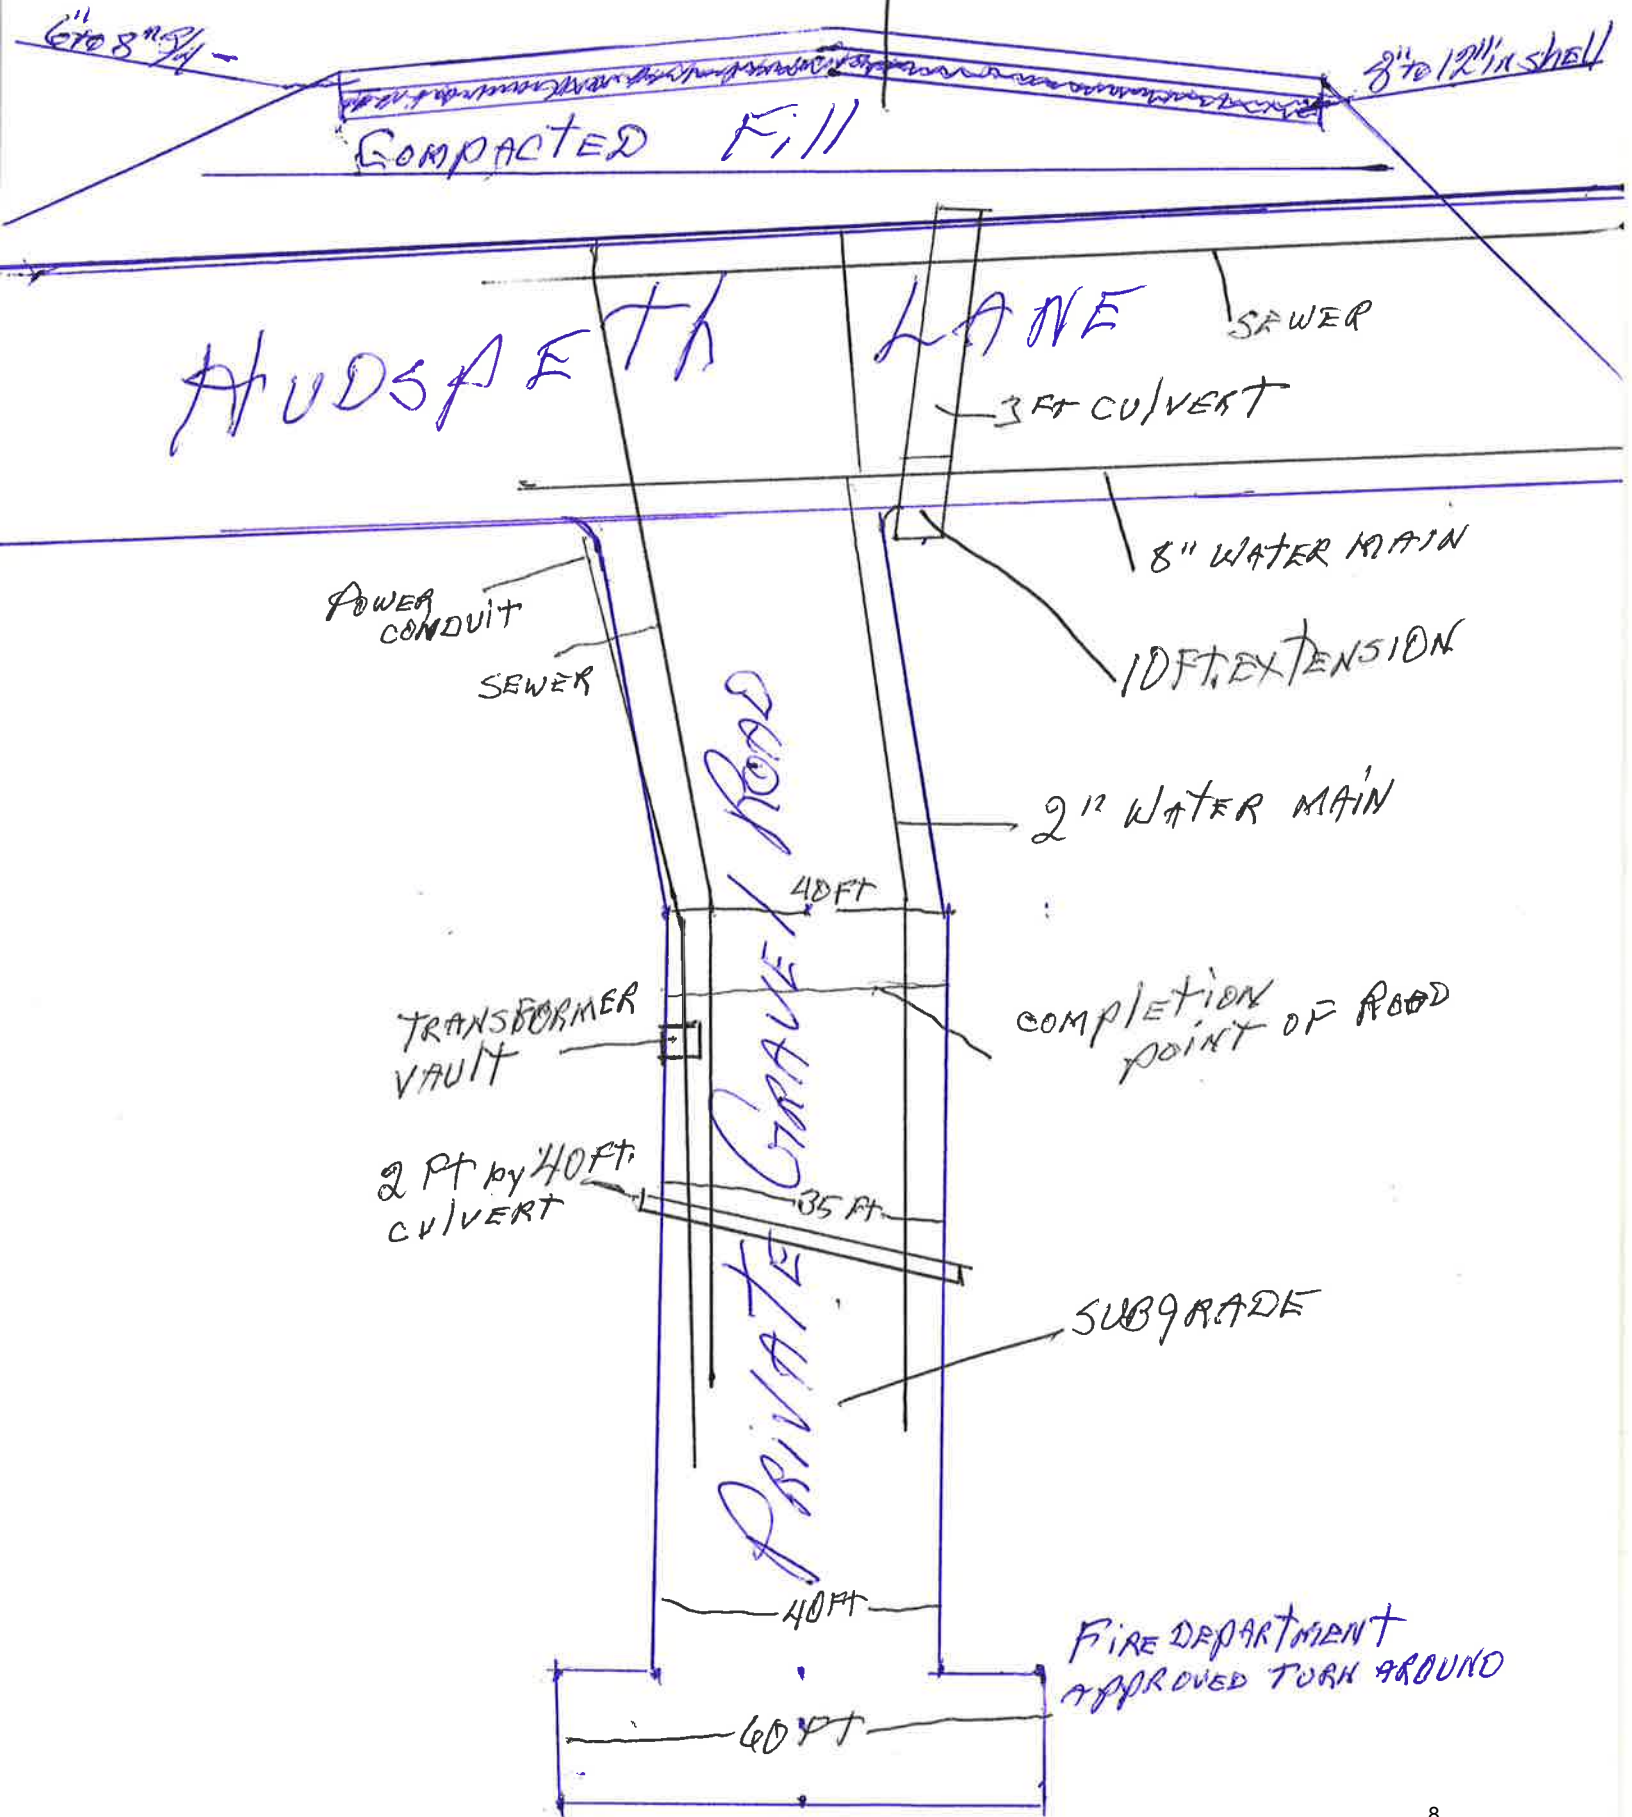 6" to 8" 3/4 -
8" to 12" in shell
COMPACTED Fill
HUDSPETH LANE
SEWER
3 Ft CulVERT
8" WATER MAIN
POWER
CONDUIT
10 FT. EXTENSION
SEWER
2" WATER MAIN
40 FT
TRANSFORMER
VAULT
COMPLETION
POINT OF ROAD
2 Ft by 40 Ft.
CULVERT
35 Ft.
PRIVATE GRAVEL ROAD
SUBGRADE
40 Ft
FIRE DEPARTMENT
APPROVED TURN AROUND
60 FT
8